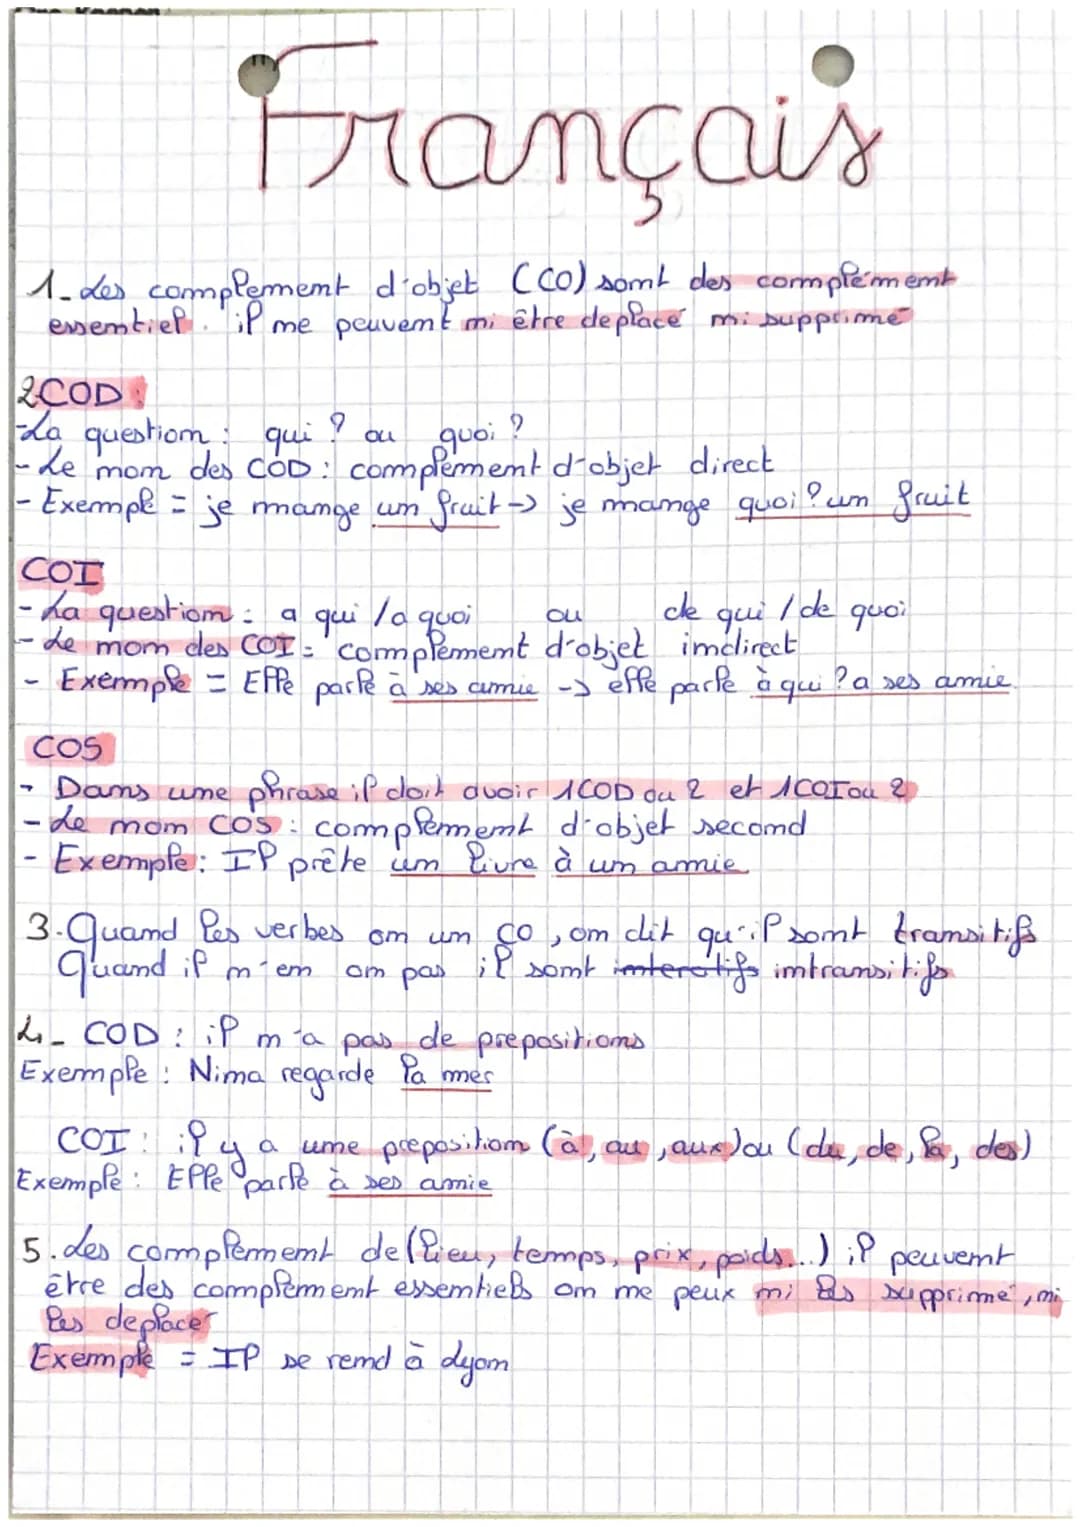 Français
1- Les complement d'objet (CO) sont des complément
essentiel. il ne peuvent ni être deplacé ni supprimé
2COD:
-La question : qui ? ou quoi ?
- Le nom des COD : complement d'objet direct
- Exemple = je mange un fruit -> je mange quoi ? un fruit
COI
- La question : a qui / a quoi ou de qui / de quoi
- Le nom des COI = complement d'objet indirect
- Exemple = Elle parle à ses amie -> elle parle à qui ? a ses amie.
COS
- Dans une phrase il doit avoir 1COD ou 2 et 1COI ou 2
- Le nom COS : complement d'objet second
- Exemple : Il prête un livre à un amie.
3. Quand les verbes on un CO, on dit qu'il sont transitifs
Quand il n'en on pas il sont interatifs intransitifs
4- COD : il n'a pas de prepositions
Exemple : Nina regarde la mer
COI : il y a une preposition (à, au, aux) ou (du, de, la, des)
Exemple : Elle parle à ses amie
5. Les complement de (lieu, temps, prix, poids...) il peuvent
être des complement essentiels on ne peux ni les supprimé, ni
les deplacer
Exemple = Il se rend à Lyon